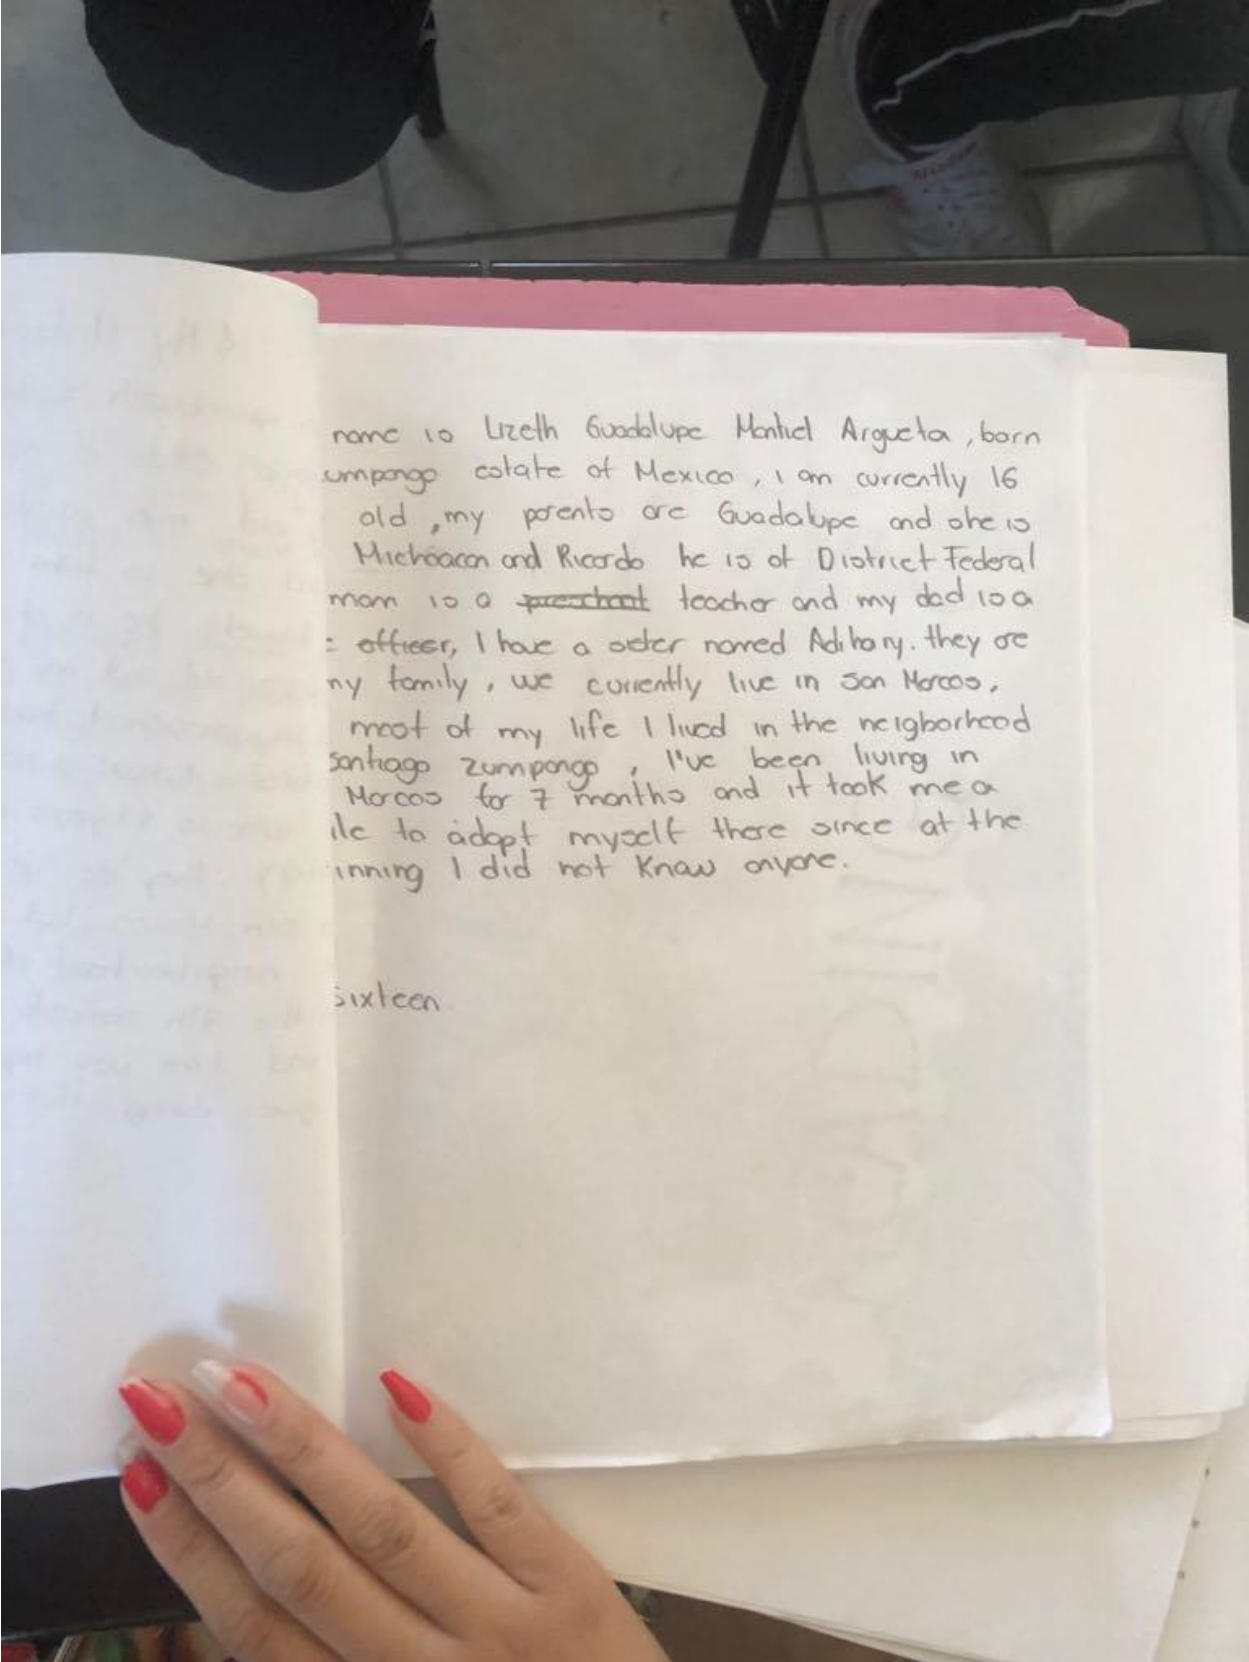 name is Lizeth Guadalupe Montiel Argueta, born
umpango estate of Mexico, i am currently 16
old, my parents are Guadalupe and she is
Michoacan and Ricardo he is of District Federal
mom is a preschool teacher and my dad is a
officer, I have a sister named Adihany. they are
my family, we currently live in San Marcos,
most of my life I lived in the neigborhood
santiago zumpango, I've been living in
Marcos for 7 months and it took me a
ile to adapt myself there since at the
inning I did not know anyone.
Sixteen